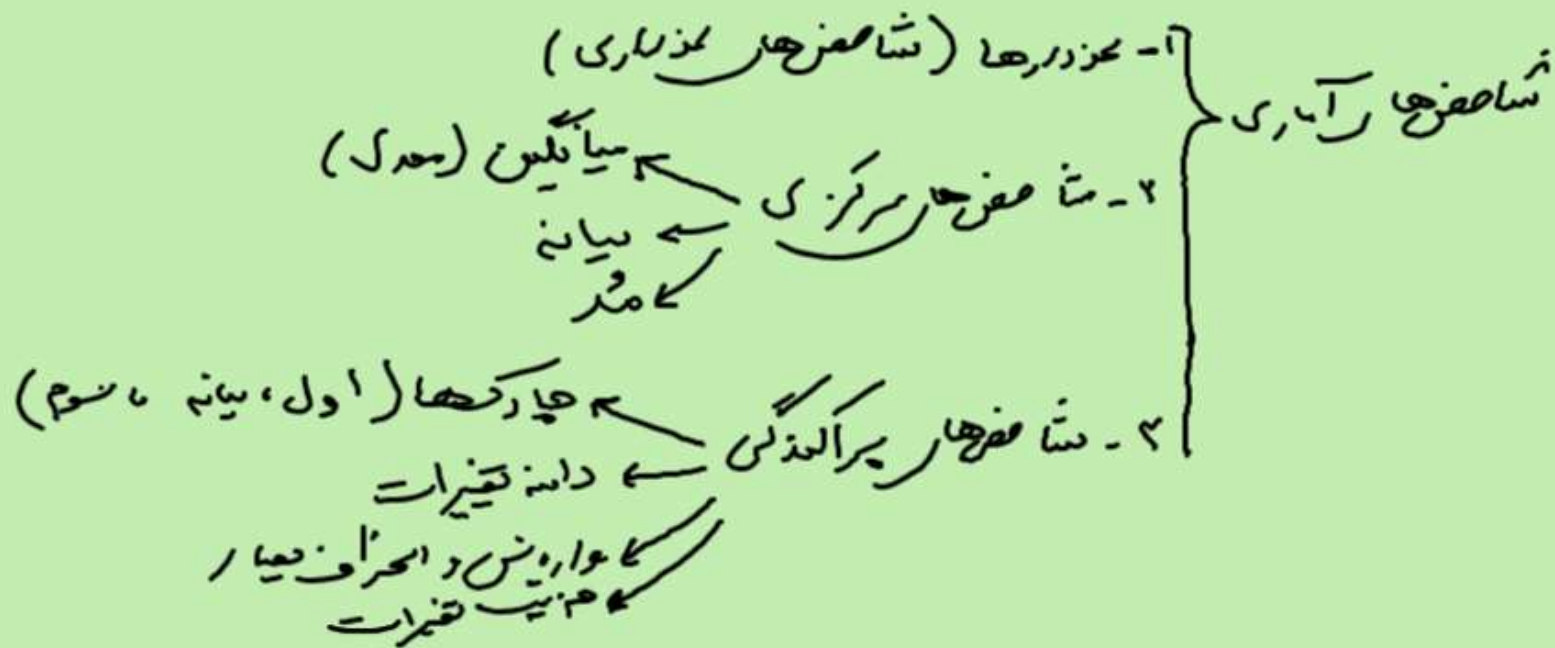 شاخص‌های آماری
۱- نمودارها (شاخص‌های نموداری)
۲- شاخص‌های مرکزی
میانگین (معدل)
میانه
مُد
۳- شاخص‌های پراکندگی
چارک‌ها (اول، میانه، سوم)
دامنه تغییرات
واریانس و انحراف معیار
ضریب تغییرات